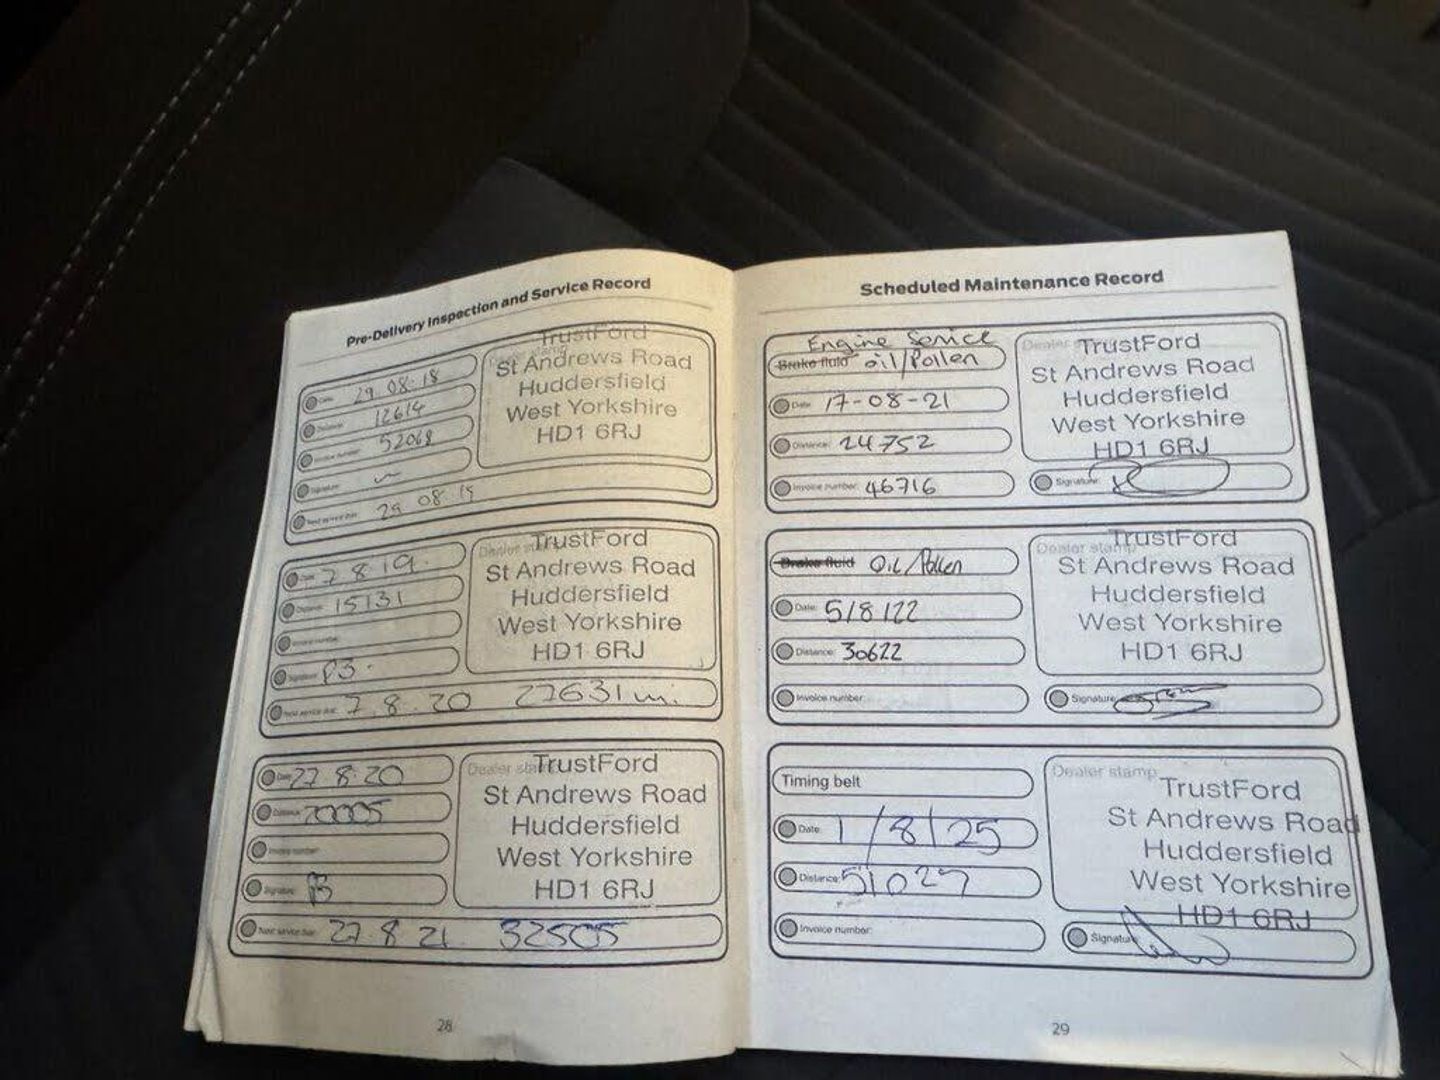 Pre-Delivery Inspection and Service Record
Date: 29.08.18
Distance: 12614
Invoice number: 52068
Signature:
Next service due: 29 08 19
TrustFord
St Andrews Road
Huddersfield
West Yorkshire
HD1 6RJ
Date: 7 8 19.
Distance: 15131
Invoice number:
Signature: PB.
Next service due: 7.8.20 27631 mi.
Dealer stamp
TrustFord
St Andrews Road
Huddersfield
West Yorkshire
HD1 6RJ
Date: 27.8.20
Distance: 20005
Invoice number:
Signature: PB
Next service due: 27.8 21. 32505
Dealer stamp
TrustFord
St Andrews Road
Huddersfield
West Yorkshire
HD1 6RJ
28
Scheduled Maintenance Record
Engine Service
Brake fluid Oil/Pollen
Date: 17-08-21
Distance: 24752
Invoice number: 46716
Dealer
TrustFord
St Andrews Road
Huddersfield
West Yorkshire
HD1 6RJ
Signature:
Brake fluid Oil/Pollen
Date: 5/8/22
Distance: 30622
Invoice number:
Dealer stamp
TrustFord
St Andrews Road
Huddersfield
West Yorkshire
HD1 6RJ
Signature:
Timing belt
Date: 1/8/25
Distance: 51027
Invoice number:
Dealer stamp
TrustFord
St Andrews Road
Huddersfield
West Yorkshire
HD1 6RJ
Signature:
29